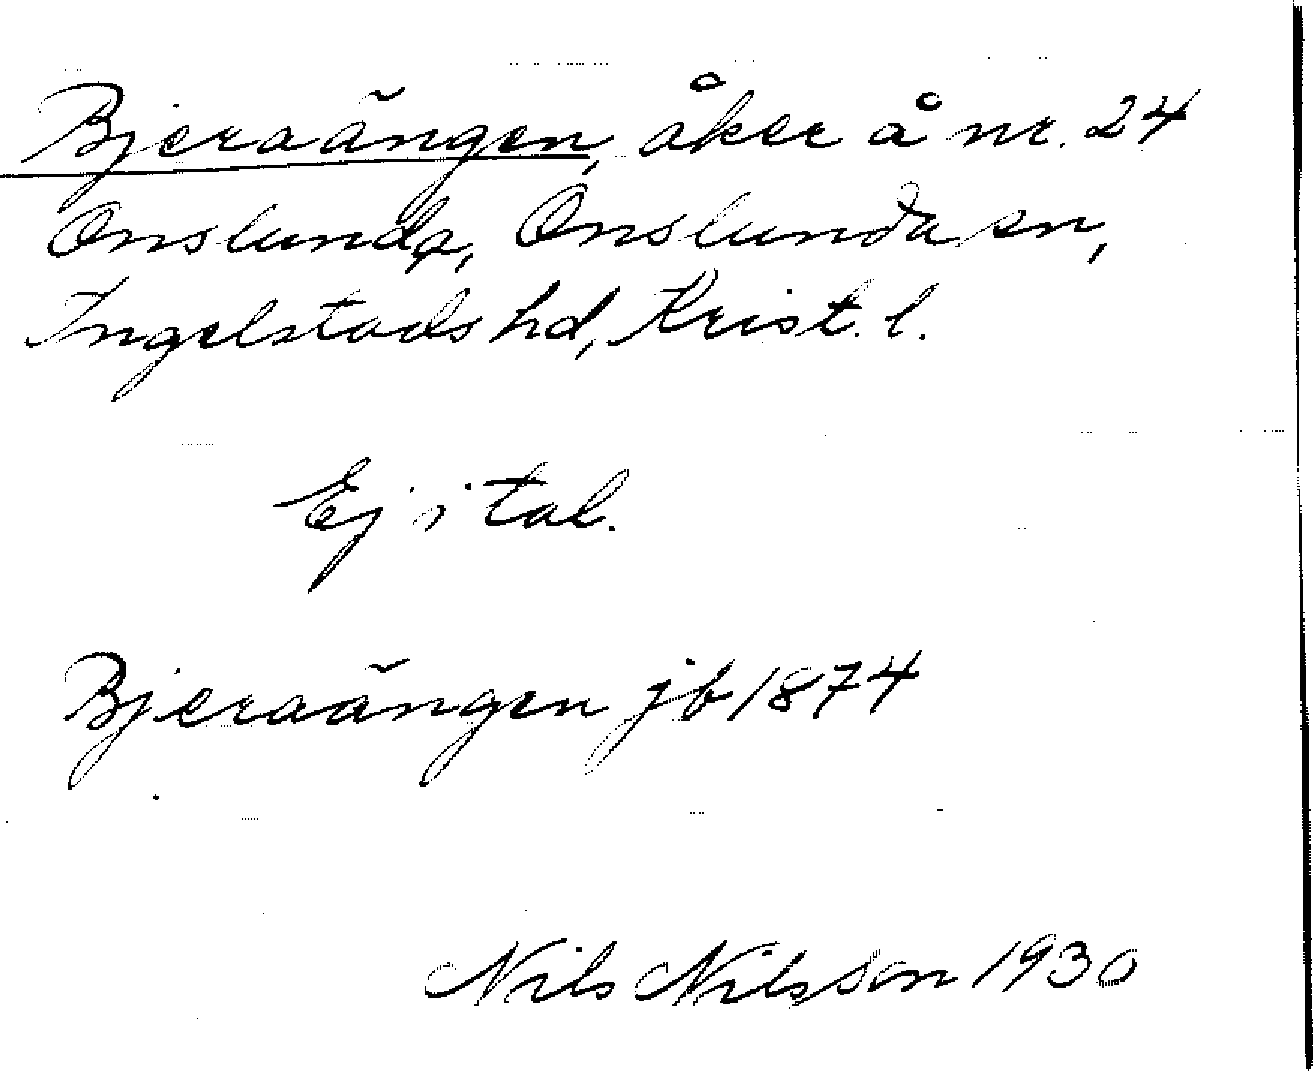 Bjeraängen, åker å nr. 24
Onslunda, Onslunda sn,
Ingelstads hd, Krist. l.
Ej i tal.
Bjeraängen jb 1874
Nils Nilsson 1930